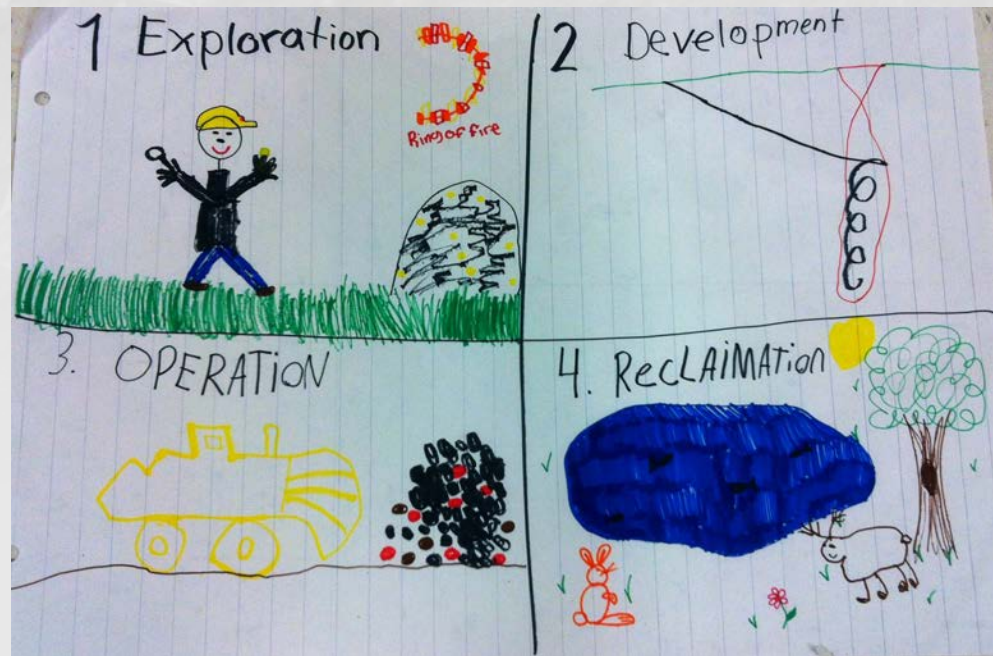 1 Exploration
Ring of fire
2 Development
3. OPERATiON
4. RecLAiMATiON